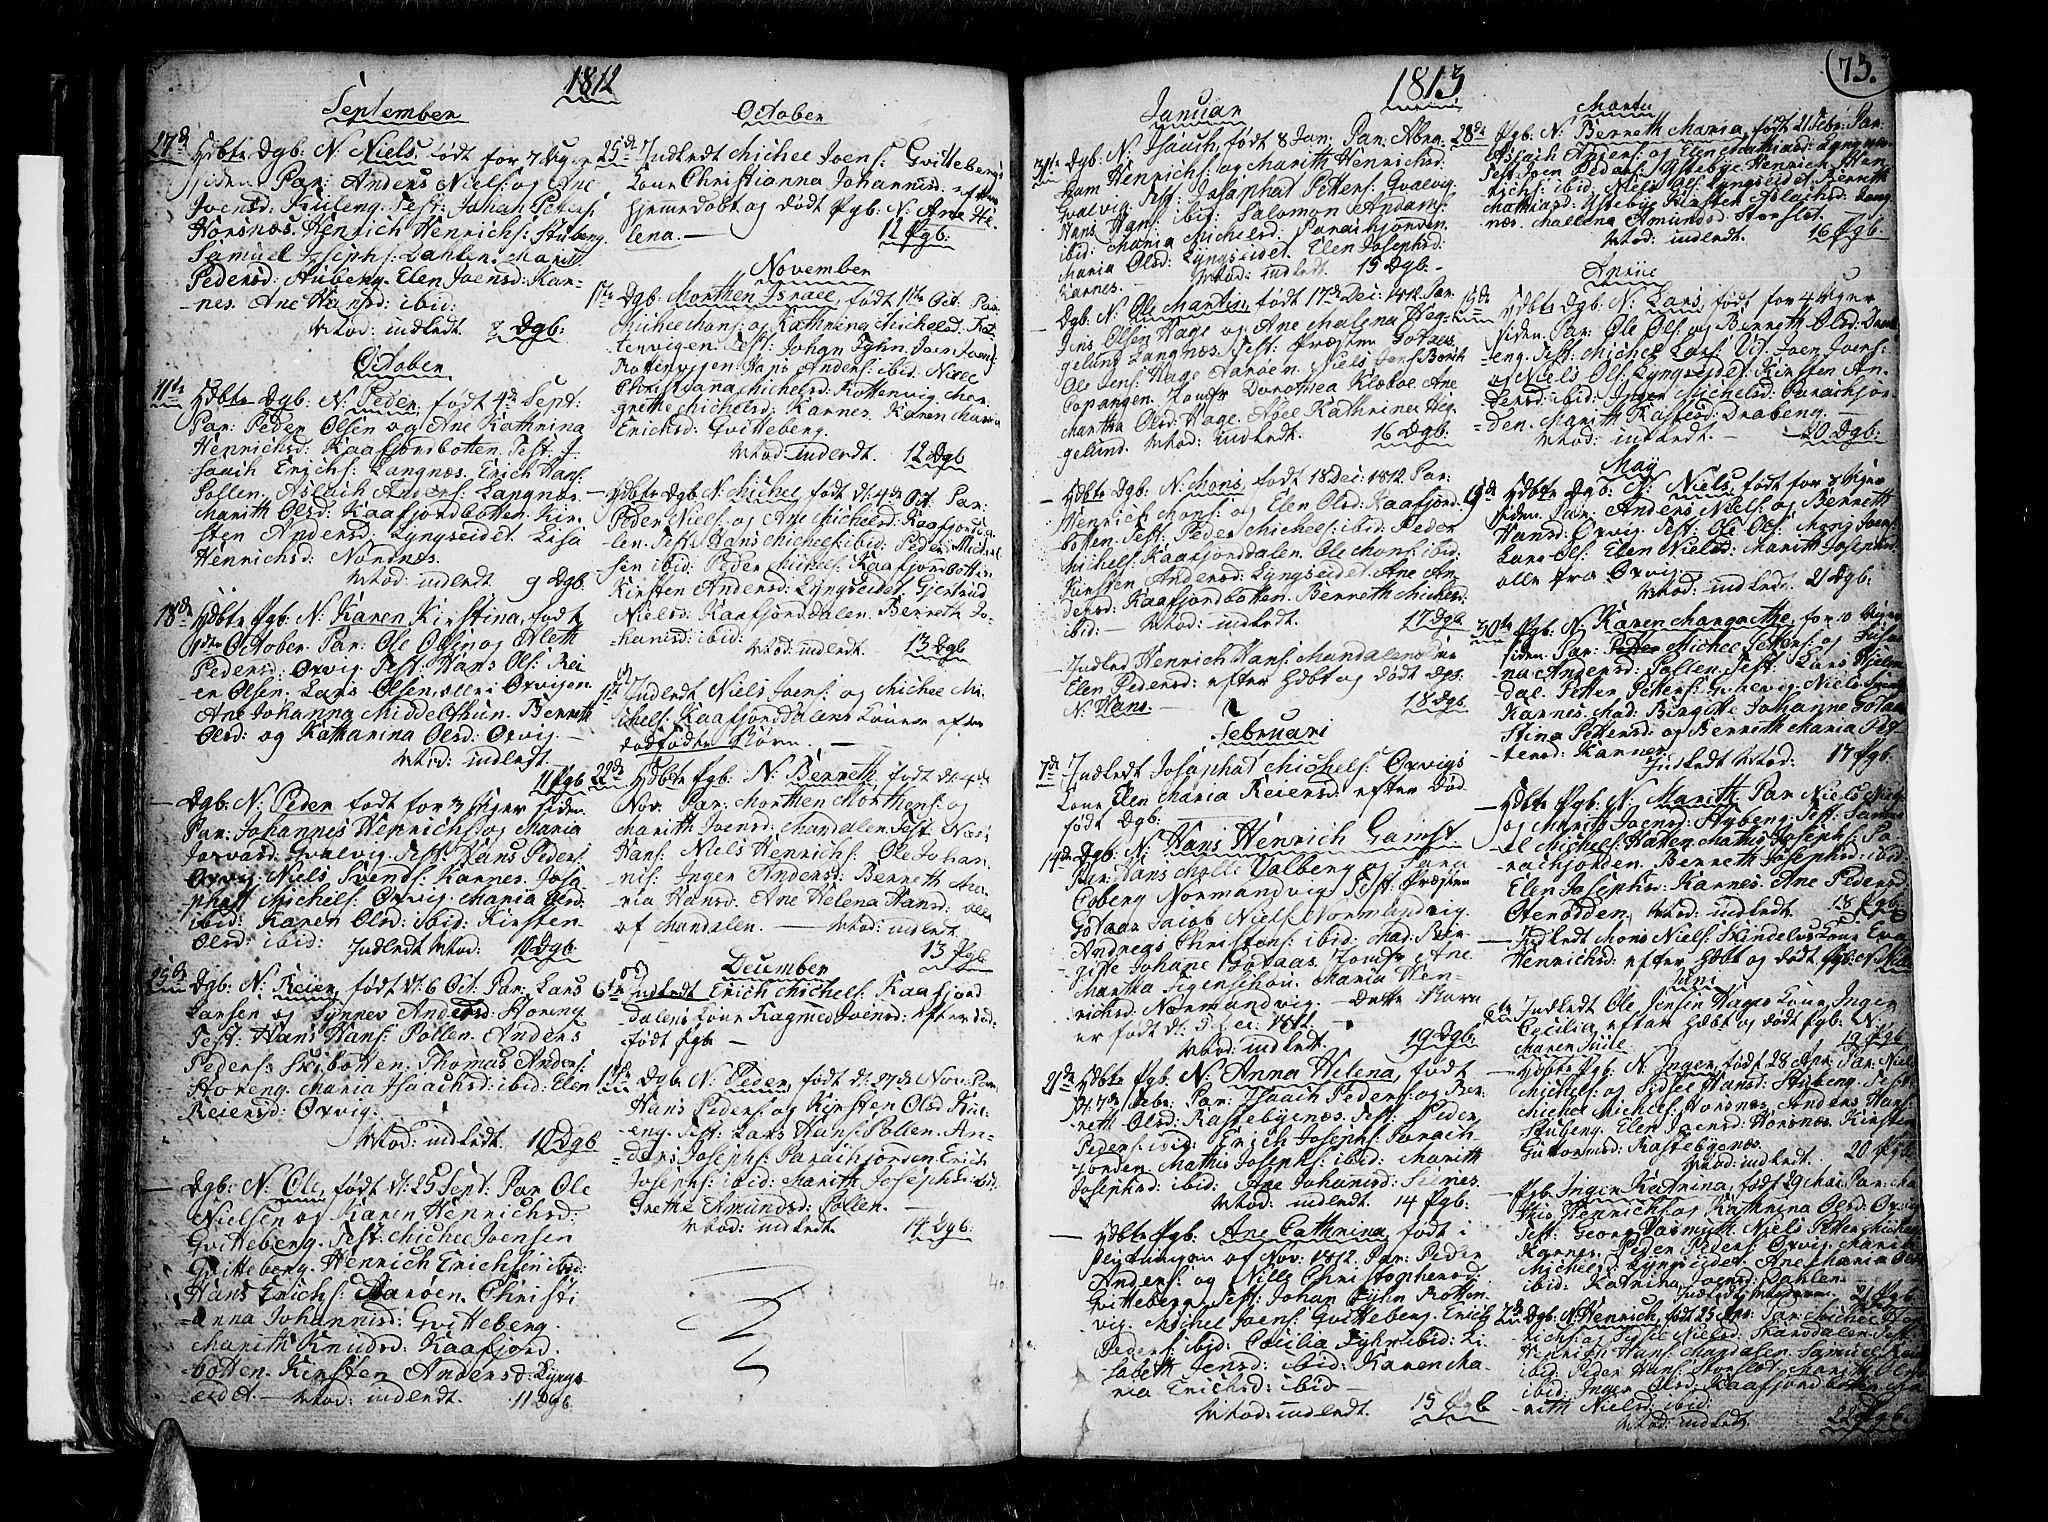 1812
September
27de Hdbte Dgb: N: Niels, født for 7 Uger
siden Par: Anders Niels: og Ane
Joensd: Kuileng. Test: Johan Peters:
Horsnæs. Henrich Henrichs: Stuberg.
Samuel Josephs: Dahlen. Marit
Pedersd: Auberg. Elen Joensd: Kar-
nes. Ane Hansd: ibid:
Mod: indledt. 7 Dgb:
October
11te Hdbte Dgb: N: Peder, født 4de Sept:
Par: Peder Olsen og Ane Kathrina
Henrichsd: Kaafjordbotten. Test: J-
saach Erichs: Langnæs. Erich Hans:
Pollen. Aslach Anders: Langnæs.
Marith Olsd: Kaafjordbotten. Kir-
sten Andersd: Lyngseidet. Lisa
Henrichsd: Nordnes.
Mod: indledt 9 Dgb.
18de Hdbte Pgb: N: Karen Kirstina, født
1de October. Par: Ole Olsen og Aleth
Pedersd: Oxvig. Test: Hans Ols: Rei-
er Olsen. Lars Olsen, alle i Oxvigen.
Ane Johanna Middelthun. Berreth
Olsd: og Katharina Olsd: Oxvig.
Mod: indledt.
11 Pgb
— Dgb: N: Peder født for 3 Uger siden
Par: Johannes Henrichs: og Maria
Jorvasd: Qvalvig. Test: Hans Peders:
Oxvig. Niels Svends: Karnes. Josa-
phat Michels: Oxvig. Maria Olsd:
ibid: Karen Olsd: ibid: Kirsten
Olsd: ibid: Indledt Mod: 10 Dgb.
25de Dgb: N: Reier, født d: 6 Oct. Par: Lars
Larsen og Synnev Andersd: Horeng.
Test: Hans Hans: Pollen. Anders
Peders: Skibotten. Thomas Anders:
Horeng. Maria Isaachsd: ibid: Elen
Reiersd: Oxvig.
Mod: indledt. 10 Dgb
— Dgb: N: Ole, født d: 25 Sept: Par: Ole
Nielsen og Karen Henrichsd:
Gvitteberg. Test: Michel Joensen
Gvitteberg. Henrich Erichsen ibid:
Hans Erichs: Aarøen. Christi-
anna Johannisd: Gvitteberg.
Marith Knudsd: Kaafjord-
botten. Kirsten Andersd: Lyngs-
eidet. — Mod: indledt. 11 Dgb.
October
25de Indledt Michel Joens: Gvittebergs
Kone Christianna Johannisd. efter
Hjemmedøbt og død Pgb: N: Ane He-
lena — 12 Pgb:
November
1te Dgb: Morthen Israel, født 11te Oct. Par:
Michel Mons: og Kathrina Michelsd: Rot-
tenvigen. Test: Johan Fyhn. Joen Joens:
Rottenvigen. Hans Anders: ibid: Nille
Christiana Michelsd: Rottenvig. Mar-
grethe Michelsd: Karnes. Karen Maria
Erichsd: Gvitteberg.
Mod: indledt. 12 Dgb
— Hdbte Dgb: N: Michel født d: 4de Oct. Par:
Peder Niels: og Ane Michelsd: Kaafjordda-
len. Test: Hans Michels: ibid: Peder Michel-
sen ibid: Peder Michels: Kaafjordbotten.
Kirsten Andersd: Lyngseidet. Gjertrud
Nielsd: Kaafjorddalen. Berreth Jo-
hansd: ibid:
Mod: indledt. 13 Dgb
11te Indledt Niels Joens: og Michel Mi-
chels: Kaafjorddalens Koner efter
dødfødte Børn. —
22de Hdbte Pgb: N: Berreth, født d: 4de
Nov. Par: Morthen Morthens: og
Marith Joensd: Mandalen. Test:
Hans: Niels Henrichs: Ole Johan-
nis: Inger Andersd: Berreth Ma-
ria Hansd: Ane Helena Hansd: alle
af Mandalen. — Mod: indledt.
13 Pgb
December
6te Indledt Erich Michels: Kaafjord-
dalens Kone Ragned Joensd: efter død-
født Pgb —
13de Dgb: N: Peder, født d: 27de Nov: Par:
Hans Peders: og Kirsten Olsd Kul-
eng. Test: Lars Hans: Pollen. An-
ders Josephs: Parachjorden. Erich
Josephs: ibid: Marith Josephsd: ibid.
Grethe Amundsd: Pollen. —
Mod: indledt. 14 Dgb:
40
1813
73.
Januar
31te Dgb: N: Isaach, født 8 Jan: Par: Abra-
ham Henrichs: og Marith Henrichsd:
Qvalvig. Test: Josaphat Petters: Qvalvig.
Hans Hans: ibid: Salomon Andams:
ibid: Maria Michelsd: Parachjorden.
Maria Olsd: Lyngseidet. Elen Josephsd:
Karnes. — Mod: indledt. 15 Dgb. —
— Dgb: N: Ole Martin, født 17de Dec: 1812. Par:
Jens Olsen Hage og Ane Malena Heg-
gelund Langnæs. Test: Præsten Gotaas.
Ole Jens: Hage Aarøen. Niels Jens: Borch
Popangen. Jomfr Dorothea Klæboe. Ane
Martha Olsd: Hage. Abel Kathrina Heg-
gelund. Mod: indledt. 16 Dgb.
— Hdbte Dgb: N: Mons, født 18 Dec: 1812. Par:
Henrich Mons: og Elen Olsd: Kaafjord-
botten. Test: Peder Michels: ibid: Peder
Michels: Kaafjorddalen. Ole Mons: ibid:
Kirsten Andersd: Lyngseidet. Ane An-
dersd: Kaafjordbotten. Berreth Michelsd:
ibid: — Mod: indledt. 17 Dgb
— Indled Henrich Hans: Mandalens Kone
Elen Pedersd: efter Hdbt og dødt Dgb.
N: Hans. — 18 Dgb
Februari
7de Indledt Josaphat Michels: Oxvigs
Kone Elen Maria Reiersd: efter død-
født Dgb:
14de Dgb: N: Hans Henrich Gamst
Par: Hans Molle Valberg og Sara
Coberg Normandvig. Test: Præsten
Gotaas. Jacob Niels: Normandvig.
Andreas Christens: ibid: Mad: Bir-
gitte Johane Gotaas. Jomfr Ane
Martha Figenschou. Maria Hen-
richsd: Normandvig. — Dette Barn
er født d: 5 Dec: 1812.
Mod: indledt. 19 Dgb:
21de Hdbte Pgb: N: Anna Helena, født
d: 7de Febr: Par: Isaach Peders: og Ber-
reth Olsd: Rastebyenæs. Test: Peder
Peders: ibid: Erich Josephs: Parach-
jorden. Mathis Josephs: ibid: Marith
Josephsd: ibid: Ane Johanisd: Seines.
Mod: indledt. 14 Pgb:
— Hdbte Pgb: Ane Cathrina, født i
slutningen af Nov: 1812. Par: Peder
Anders: og Nille Christophersd:
Gvitteberg. Test: Johan Fyhn Rotten-
vig. Michel Joens: Gvitteberg. Erich
Peders: ibid: Cecilia Fyhn ibid: Li-
sabeth Jensd: ibid: Karen Ma-
ria Erichsd: ibid —
Mod: indledt. 15 Pgb
Martii
28de Pgb: N: Berreth Maria, født 21 Febr: Par:
Aslach Anders: og Elen Mathiasd: Langnæs.
Test: Joen Peders: Ystebye. Henrich Hen-
richs: ibid: Niels Ols: Lyngseidet. Berreth
Mathiasd: Ystebye. Kirsten Aslachsd: Lang-
næs. Mallena Amundsd: Storslet.
Mod: indledt. 16 Pgb:
Aprile
19de Hdbte Dgb: N: Lars, født for 4 Uger
siden. Par: Ole Ols: og Berreth Olsd: Drab-
eng. Test: Michel Lars: Joen Joens:
og Niels Ols: Lyngseidet. Kirsten An-
dersd: ibid: Inger Michelsd: Parachjor-
den. Marith Drabeng. —
Mod: indledt. — 20 Dgb:
May
19de Hdbte Dgb: N: Niels, født for 3 Uger
siden. Par: Anders Niels: og Berreth
Hansd: Oxvig. Test: Ole Ols: Mons Joens:
Lars Ols: Elen Nielsd: Marith Josephsd:
alle fra Oxvig.
Mod: indledt 21 Dgb:
30te Pgb: N: Karen Margrethe, for 10 Uger
siden. Par: Michel Petters: og Susan-
na Andersd: Pollen. Test: Lars Hjelm-
dal. Petter Petters: Qvalvig. Niels Svends:
Karnes. Mad: Birgitte Johanne Gotaas
Stina Pettersd: og Berreth Maria Pet-
tersd: Karnes.
Indledt Mod: 17 Pgb:
— Hdbte Pgb: N: Marith. Par: Niels Niels:
og Marith Joensd: Nyberg. Test: Samu-
el Michels: Hatten. Mathis Josephs: Pa-
rachjorden. Berreth Josephsd: ibid:
Elen Josephsd: Karnes. Ane Pedersd:
Oterødden. Mod: indledt. 18 Pgb:
— Indledt Mons Niels: Skindelvs Kone Eva
Henrichsd: efter Hdbt og dødt Pgb: N: Nille
Juni
6te Indledt Ole Jensen Hages Kone Inger
Cecilia efter Hdbt og dødt Pgb: N:
Maren Juile. 19 Pgb
— Hdbte Pgb: N: Inger, født 28 Apr: Par: Niels
Michels: og Sidsel Hansd: Stuberg. Test:
Michel Michels: Horsnæs. Anders Hans:
Stuberg. Elen Joensd: Horsnæs. Kirsten
Guttormsd: Rastebyenæs.
Mod: indledt. 20 Pgb
— Pgb: Inger Katrina, født 29 Mai. Par: Ma-
this Henrichs: og Kathrina Olsd: Oxvig
Test: Georg Wasmuth. Niels Petter Michels:
Karnes. Peder Peders: Oxvig. Maria
Michelsd: Lyngseidet. Ane Maria
ibid: Katrina Joensd: Dahlen.
Indledt Moderen. 21 Pgb
Dgb: N: Henrich, født 25 Par: Michel Hen-
richs: og Sidsel Nielsd: Skardalen. Test:
Henrich Hans: Mandalen. Samuel
ibid: Peder Hans: Storslet. Marith Olsd:
ibid: Inger Olsd: Kaafjordbotten. Ma-
rith Nielsd: ibid:
Mod: indledt. 22 Dgb: